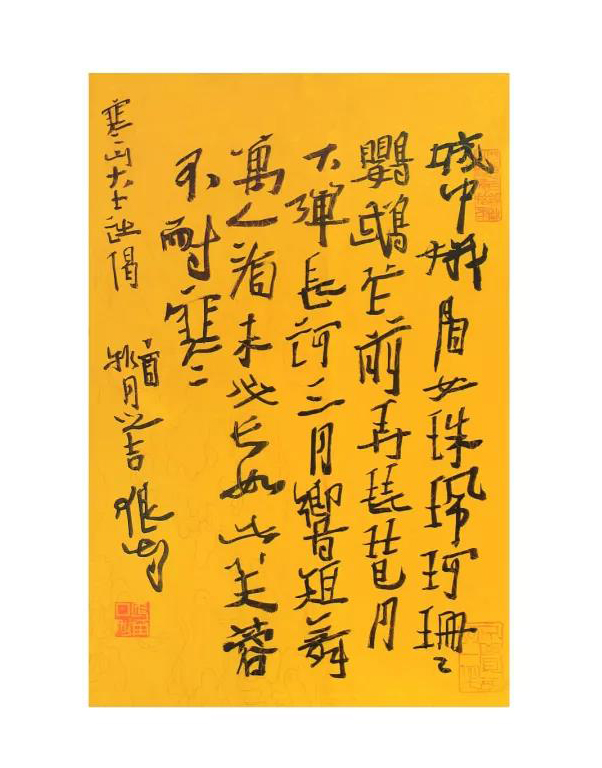 城中娥眉女珠珮珂珊〻
鸚鵡花前弄琵琶月
下彈長訶三月響短舞
萬人看未必長如此芙蓉
不耐寒
寒山大士偈
月之吉